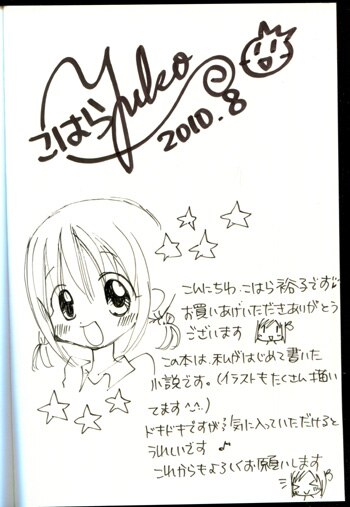 こはら Yuko
2010.8
こんにちわ、こはら裕子です
お買いあげいただきありがとう
ございます
この本は、私がはじめて書いた
小説です。(イラストもたくさん描い
てます^^.)
ドキドキですが気に入っていただけると
うれしいです♪
これからもよろしくお願いします